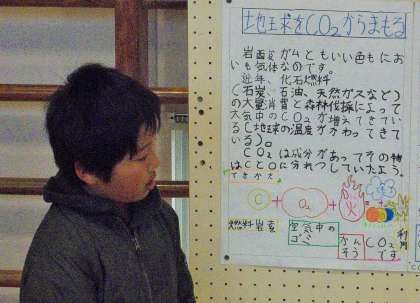 地球をCO₂からまもる
岩面ガムともいい色もにお
いも気体なのです。
近年、化石燃料
(石炭、石油、天然ガスなど)
の大量消費と森林伐採によって
大気中のCO₂が増えてきてい
る(地球の温度がかわってきて
いる)。
CO₂は成分があってその物
はCとOに分れつしていたよう。
できかた
C + O₂ + 火
燃料岩素
空気中の
ゴミ
かんそう
CO₂
です
利用